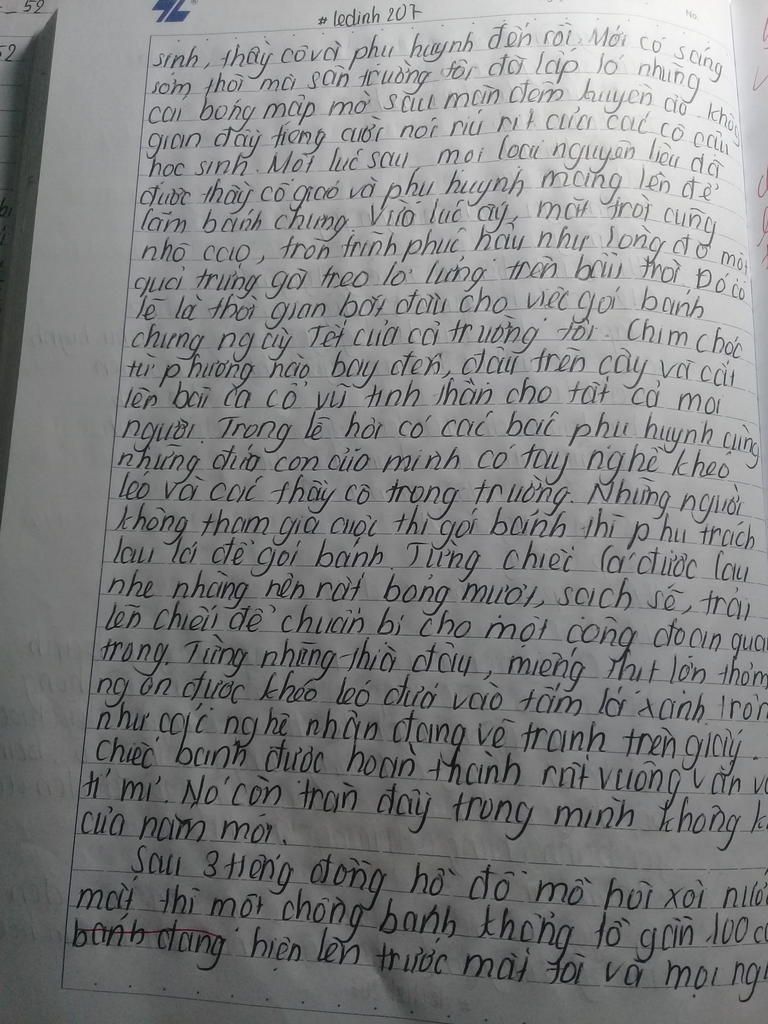 52
# ledinh 207
No.
52
sinh, thầy cô và phụ huynh đến rồi. Mới có sáng
sớm thôi mà sân trường tôi đã lấp ló những
cái bóng mập mờ sau màn đêm huyền ảo, khôn
gian đầy tiếng cười nói ríu rít của các cô cậu
học sinh. Một lúc sau, mọi loại nguyên liệu đã
được thầy cô giáo và phụ huynh mang lên để
làm bánh chưng. Vừa lúc ấy, mặt trời cũng
nhô cao, tròn trĩnh phúc hậu như lòng đỏ một
quả trứng gà treo lơ lửng trên bầu trời. Đó có
lẽ là thời gian bắt đầu cho việc gói bánh
chưng ngày Tết của cả trường tôi. Chim chóc
từ phương nào bay đến, đậu trên cây và cất
lên bài ca cổ vũ tinh thần cho tất cả mọi
người. Trong lễ hội có các bác phụ huynh cùng
những đứa con của mình có tay nghề khéo
léo và các thầy cô trong trường. Những người
không tham gia cuộc thi gói bánh thì phụ trách
lau lá để gói bánh. Từng chiếc lá được lau
nhẹ nhàng nên rất bóng mượt, sạch sẽ, trải
lên chiếu để chuẩn bị cho một công đoạn qua
trọng. Từng những thìa đậu, miếng thịt lợn thơm
ngon được khéo léo đưa vào tấm lá xanh tron
như các nghệ nhân đang vẽ tranh trên giấy.
chiếc bánh được hoàn thành rất vuông vắn và
tỉ mỉ. Nó còn tràn đầy trong mình không k
của năm mới.
Sau 3 tiếng đồng hồ đổ mồ hôi xôi nướ
mắt thì một chồng bánh khổng lồ gần 100 c
bánh đang hiện lên trước mắt tôi và mọi ng